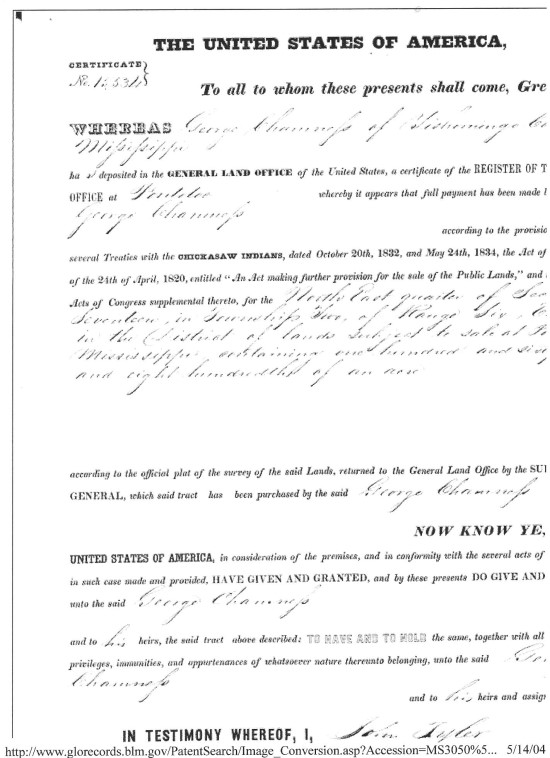 THE UNITED STATES OF AMERICA,
CERTIFICATE
No.
To all to whom these presents shall come, Gre
WHEREAS George Chamness of Tishomingo Co
Mississippi
ha s deposited in the GENERAL LAND OFFICE of the United States, a certificate of the REGISTER OF T
OFFICE at Pontotoc whereby it appears that full payment has been made
George Chamness
according to the provisio
several Treaties with the CHICKASAW INDIANS, dated October 20th, 1832, and May 24th, 1834, the Act of
of the 24th of April, 1820, entitled "An Act making further provision for the sale of the Public Lands," and
Acts of Congress supplemental thereto, for the North East quarter of Sec
Seventeen, in Township of Range Six,
in the District of lands subject to sale at Po
Mississippi, containing one hundred and sixty
and eight hundredths of an acre
according to the official plat of the survey of the said Lands, returned to the General Land Office by the SU
GENERAL, which said tract has been purchased by the said George Chamness
NOW KNOW YE,
UNITED STATES OF AMERICA, in consideration of the premises, and in conformity with the several acts of
in such case made and provided, HAVE GIVEN AND GRANTED, and by these presents DO GIVE AND
unto the said George Chamness
and to his heirs, the said tract above described: TO HAVE AND TO HOLD the same, together with all
privileges, immunities, and appurtenances of whatsoever nature thereunto belonging, unto the said Geo
Chamness
and to his heirs and assign
IN TESTIMONY WHEREOF, I, John Tyler
http://www.glorecords.blm.gov/PatentSearch/Image_Conversion.asp?Accession=MS3050%5... 5/14/04